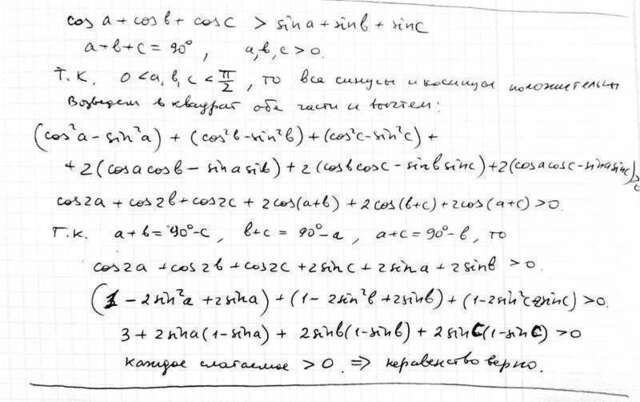 cos a + cos b + cos c > sin a + sin b + sin c
a + b + c = 90°, a, b, c > 0.
Т.к. 0 < a, b, c < π/2, то все синусы и косинусы положительны
Возведем в квадрат обе части и вычтем:
(cos²a – sin²a) + (cos²b – sin²b) + (cos²c – sin²c) +
+ 2(cos a cos b – sin a sin b) + 2(cos b cos c – sin b sin c) + 2(cos a cos c – sin a sin c) > 0
cos 2a + cos 2b + cos 2c + 2cos(a+b) + 2cos(b+c) + 2cos(a+c) > 0.
Т.к. a+b = 90°-c, b+c = 90°-a, a+c = 90°-b, то
cos 2a + cos 2b + cos 2c + 2 sin c + 2 sin a + 2 sin b > 0.
(1 – 2 sin²a + 2 sin a) + (1 – 2 sin²b + 2 sin b) + (1 – 2 sin²c + 2 sin c) > 0.
3 + 2 sin a (1 – sin a) + 2 sin b (1 – sin b) + 2 sin c (1 – sin c) > 0
Каждое слагаемое > 0. ⇒ неравенство верно.